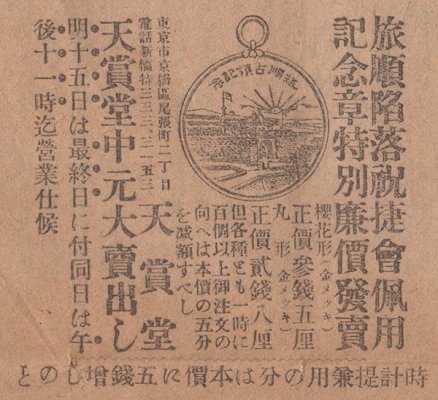 旅順陷落祝捷會佩用
記念章特別廉價發賣
旅順占領記念
櫻花形(金メッキ)
正價參錢五厘
丸形(金メッキ)
正價貳錢八厘
但各種とも一時に
百個以上御注文の
向へは本價の五分
を减額すべし
天賞堂
東京市京橋區尾張町二丁目
電話新橋特三三三、二一五三
天賞堂中元大賣出し
明十五日は最終日に付同日は午
後十一時迄營業仕候
時計提兼用の分は本價に五錢增しのと